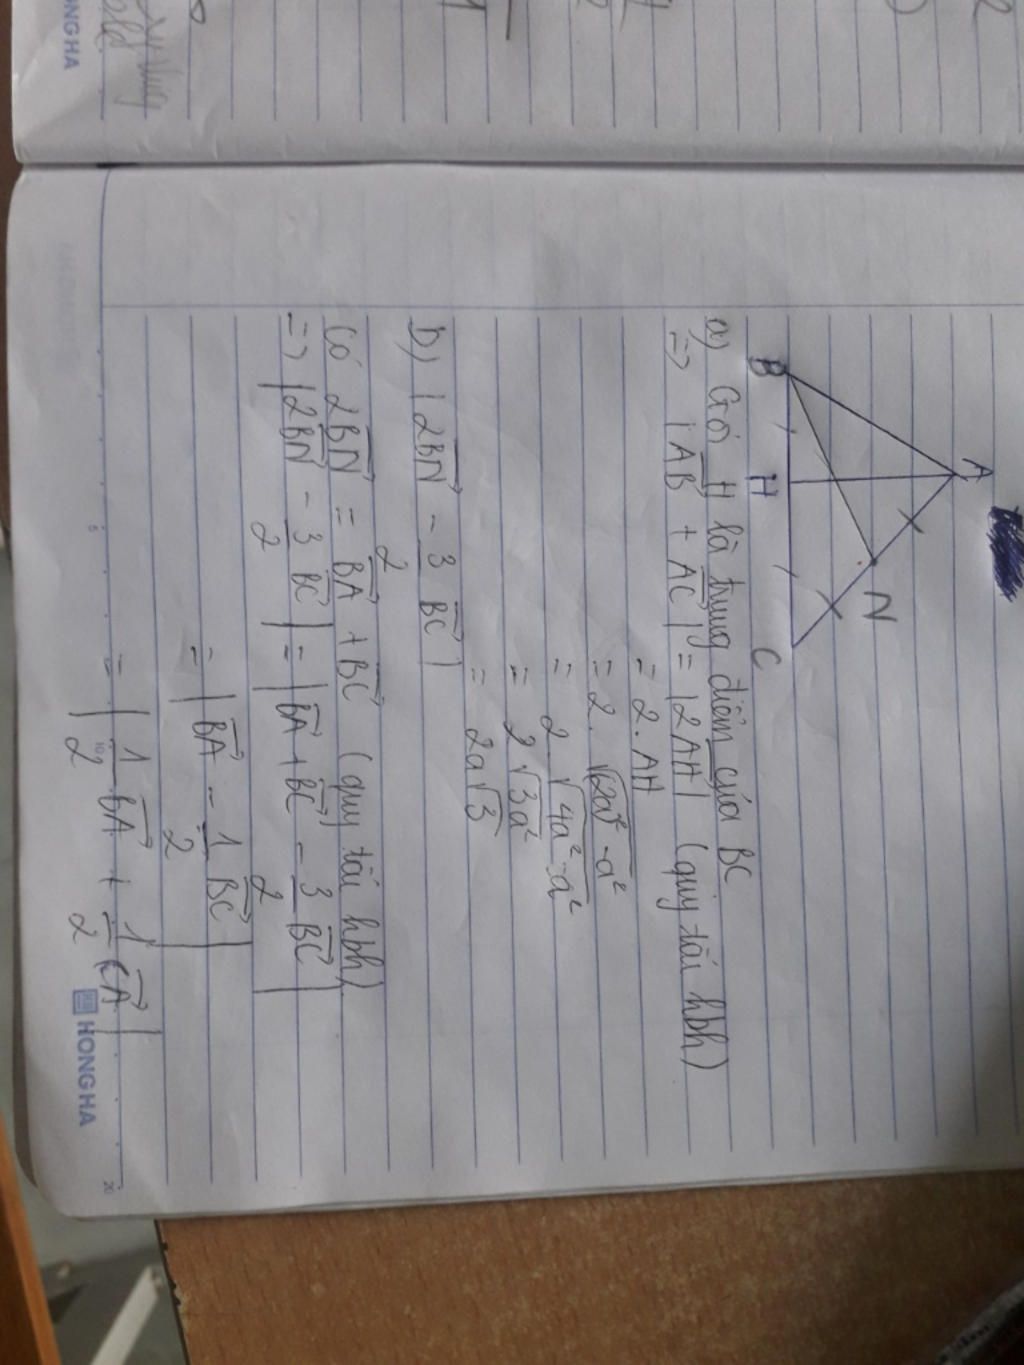 A
N
B
H
C
a) Gọi H là trung điểm của BC
=> |AB + AC| = |2AH| (quy tắc hbh)
= 2.AH
= 2. √2a² - a²
= 2 √4a² - a²
= 2 √3a²
= 2a√3
b) |2BN - 3/2 BC|
Có 2BN = BA + BC (quy tắc hbh)
=> |2BN - 3/2 BC| = |BA + BC - 3/2 BC|
= |BA - 1/2 BC|
= |1/2 BA + 1/2 CA|
HONGHA
HONGHA
5
10
20